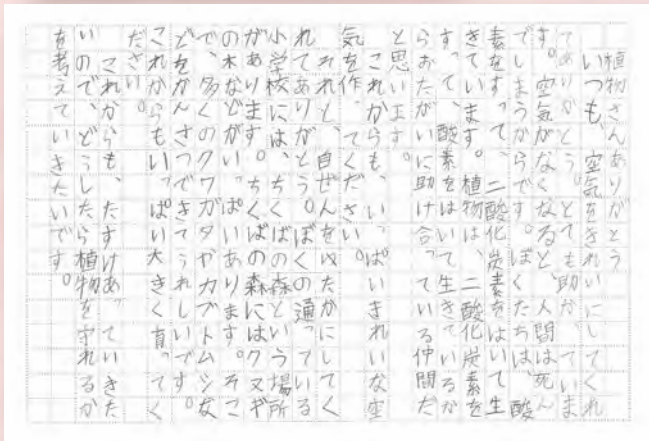 植物さんありがとう
いつも、空気をきれいにしてくれ
てありがとう。とても助かっていま
す。空気がなくなると、人間は死ん
でしまうからです。ぼくたちは、酸
素をすって、二酸化炭素をはいて生
きています。植物は、二酸化炭素を
すって、酸素をはいて生きているか
らおたがいに助け合っている仲間だ
と思います。
これからも、いっぱいきれいな空
気を作ってください。
それと、自ぜんをゆたかにしてく
れてありがとう。ぼくの通っている
小学校には、ちくばの森という場所
があります。ちくばの森にはクヌギ
の木などがいっぱいあります。そこ
で、多くのクワガタやカブトムシな
どをかんさつできてうれしいです。
これからもいっぱい大きく育ってく
ださい。
これからも、たすけあっていきた
いので、どうしたら植物を守れるか
を考えていきたいです。